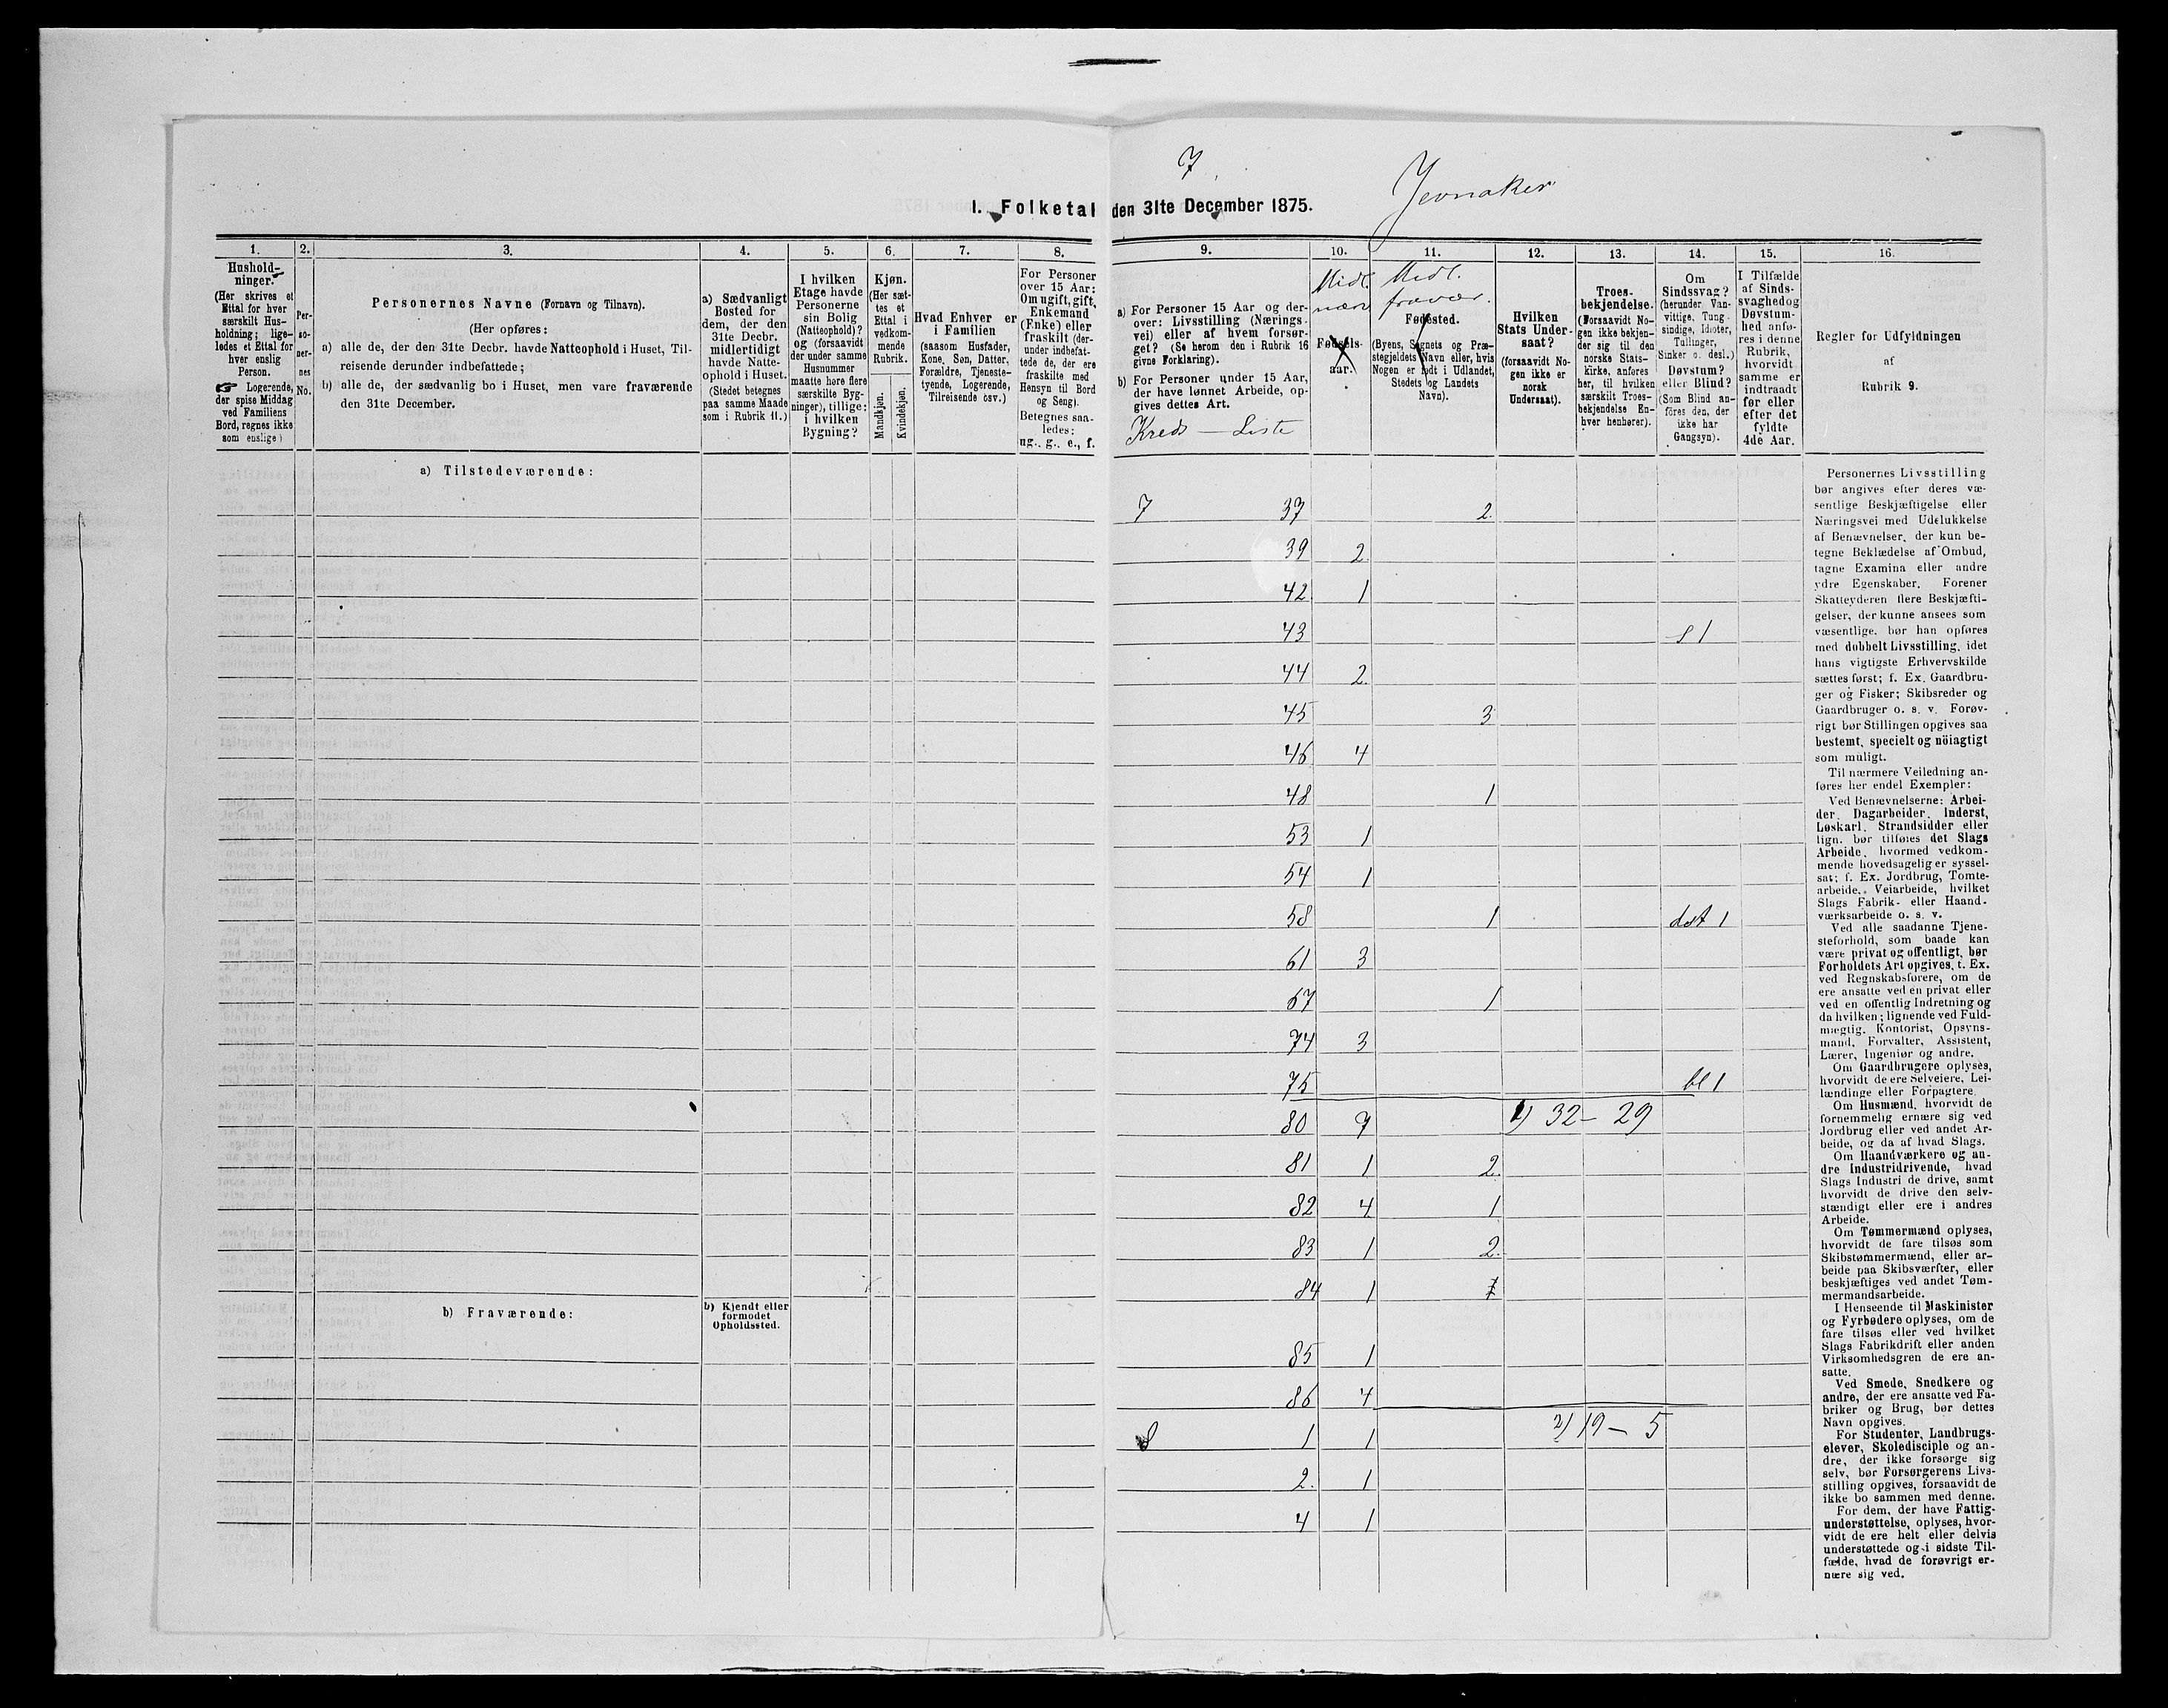 7
Jevnaker
1. Folketal den 31te December 1875.
1.
2.
3.
4.
5.
6.
7.
8.
9.
10.
11.
12.
13.
14.
15.
16.
Hushold-
ninger.
(Her skrives et
Ettal for hver
særskilt Hus-
holdning; lige-
ledes et Ettal for
hver enslig
Person.
☞ Logerende,
der spise Middag
ved Familiens
Bord, regnes ikke
som enslige)
Per-
so-
ner-
nes
No.
Personernes Navne (Fornavn og Tilnavn).
(Her opføres:
a) alle de, der den 31te Decbr. havde Natteophold i Huset, Til-
reisende derunder indbefattede;
b) alle de, der sædvanlig bo i Huset, men vare fraværende
den 31te December.
a) Sædvanligt
Bosted for
dem, der den
31te Decbr.
midlertidigt
havde Natte-
ophold i Huset.
(Stedet betegnes
paa samme Maade
som i Rubrik 11.)
I hvilken
Etage havde
Personerne
sin Bolig
(Natteophold)?
og (forsaavidt
der under samme
Husnummer
maatte høre flere
særskilte Byg-
ninger), tillige:
i hvilken
Bygning?
Kjøn.
(Her sæt-
tes et
Ettal i
vedkom-
mende
Rubrik.
Mandkjøn.
Kvindekjøn.
Hvad Enhver er
i Familien
(saasom Husfader,
Kone, Søn, Datter,
Forældre, Tjeneste-
tyende, Logerende,
Tilreisende osv.)
For Personer
over 15 Aar:
Om ugift, gift,
Enkemand
(Enke) eller
fraskilt (der-
under indbefat-
tede de, der ere
fraskilte med
Hensyn til Bord
og Seng).
Betegnes saa-
ledes:
ug., g., e., f.
a) For Personer 15 Aar og der-
over: Livsstilling (Nærings-
vei) eller af hvem forsør-
get? (Se herom den i Rubrik 16
givne Forklaring).
b) For Personer under 15 Aar,
der have lønnet Arbeide, op-
gives dettes Art.
Kreds - Liste
Midl.
nær
Fødsels-
aar.
Midl.
fravær.
Fødested.
(Byens, Sognets og Præ-
stegjeldets Navn eller, hvis
Nogen er født i Udlandet,
Stedets og Landets
Navn).
Hvilken
Stats Under-
saat?
(forsaavidt No-
gen ikke er
norsk
Undersaat).
Troes-
bekjendelse.
(Forsaavidt No-
gen ikke bekjen-
der sig til den
norske Stats-
kirke, anføres
her, til hvilken
særskilt Troes-
bekjendelse En-
hver henhører).
Om
Sindssvag?
(herunder Van-
vittige, Tung-
sindige, Idioter,
Tullinger,
Sinker o. desl.)
Døvstum?
eller Blind?
(Som Blind an-
føres den, der
ikke har
Gangsyn).
I Tilfælde
af Sinds-
svaghed og
Døvstum-
hed anfø-
res i denne
Rubrik,
hvorvidt
samme er
indtraadt
før eller
efter det
fyldte
4de Aar.
Regler for Udfyldningen
af
Rubrik 9.
a) Tilstedeværende:
7 37 2
39 2
42 1
43 s 1
44 2
45 3
46 4
48 1
53 1
54 1
58 1 dst 1
61 3
67 1
74 3
75 bl 1
80 7 1) 32 - 29
81 1 2
82 4 1
83 1 2
84 1
b) Fraværende:
b) Kjendt eller
formodet
Opholdssted.
85 1
86 4
8 1 1 2) 19 - 5
2 1
4 1
Personernes Livsstilling
bør angives efter deres væ-
sentlige Beskjæftigelse eller
Næringsvei med Udelukkelse
af Benævnelser, der kun be-
tegne Beklædelse af Ombud,
tagne Examina eller andre
ydre Egenskaber. Forener
Skatteyderen flere Beskjæfti-
gelser, der kunne ansees som
væsentlige, bør han opføres
med dobbelt Livsstilling, idet
hans vigtigste Erhvervskilde
sættes først; f. Ex. Gaardbru-
ger og Fisker; Skibsreder og
Gaardbruger o. s. v. Forøv-
rigt bør Stillingen opgives saa
bestemt, specielt og nöiagtigt
som muligt.
Til nærmere Veiledning an-
føres her endel Exempler:
Ved Benævnelserne: Arbei-
der, Dagarbeider, Inderst,
Løskarl, Strandsidder eller
lign. bør tilføies det Slags
Arbeide, hvormed vedkom-
mende hovedsagelig er syssel-
sat; f. Ex. Jordbrug, Tomte-
arbeide, Veiarbeide, hvilket
Slags Fabrik- eller Haand-
værksarbeide o. s. v.
Ved alle saadanne Tjene-
steforhold, som baade kan
være privat og offentligt, bør
Forholdets Art opgives, t. Ex.
ved Regnskabsførere, om de
ere ansatte ved en privat eller
ved en offentlig Indretning og
da hvilken; lignende ved Fuld-
mægtig, Kontorist, Opsyns-
mand, Forvalter, Assistent,
Lærer, Ingeniør og andre.
Om Gaardbrugere oplyses,
hvorvidt de ere Selveiere, Lei-
lændinge eller Forpagtere.
Om Husmænd, hvorvidt de
fornemmelig ernære sig ved
Jordbrug eller ved andet Ar-
beide, og da af hvad Slags.
Om Haandværkere og an-
dre Industridrivende, hvad
Slags Industri de drive, samt
hvorvidt de drive den selv-
stændigt eller ere i andres
Arbeide.
Om Tømmermænd oplyses,
hvorvidt de fare tilsøs som
Skibstømmermænd, eller ar-
beide paa Skibsværfter, eller
beskjæftiges ved andet Tøm-
mermandsarbeide.
I Henseende til Maskinister
og Fyrbødere oplyses, om de
fare tilsøs eller ved hvilket
Slags Fabrikdrift eller anden
Virksomhedsgren de ere an-
satte.
Ved Smede, Snedkere og
andre, der ere ansatte ved Fa-
briker og Brug, bør dettes
Navn opgives.
For Studenter, Landbrugs-
elever, Skoledisciple og an-
dre, der ikke forsørge sig
selv, bør Forsørgerens Livs-
stilling opgives, forsaavidt de
ikke bo sammen med denne.
For dem, der have Fattig-
understøttelse, oplyses, hvor-
vidt de ere helt eller delvis
understøttede og i sidste Til-
fælde, hvad de forøvrigt er-
nære sig ved.